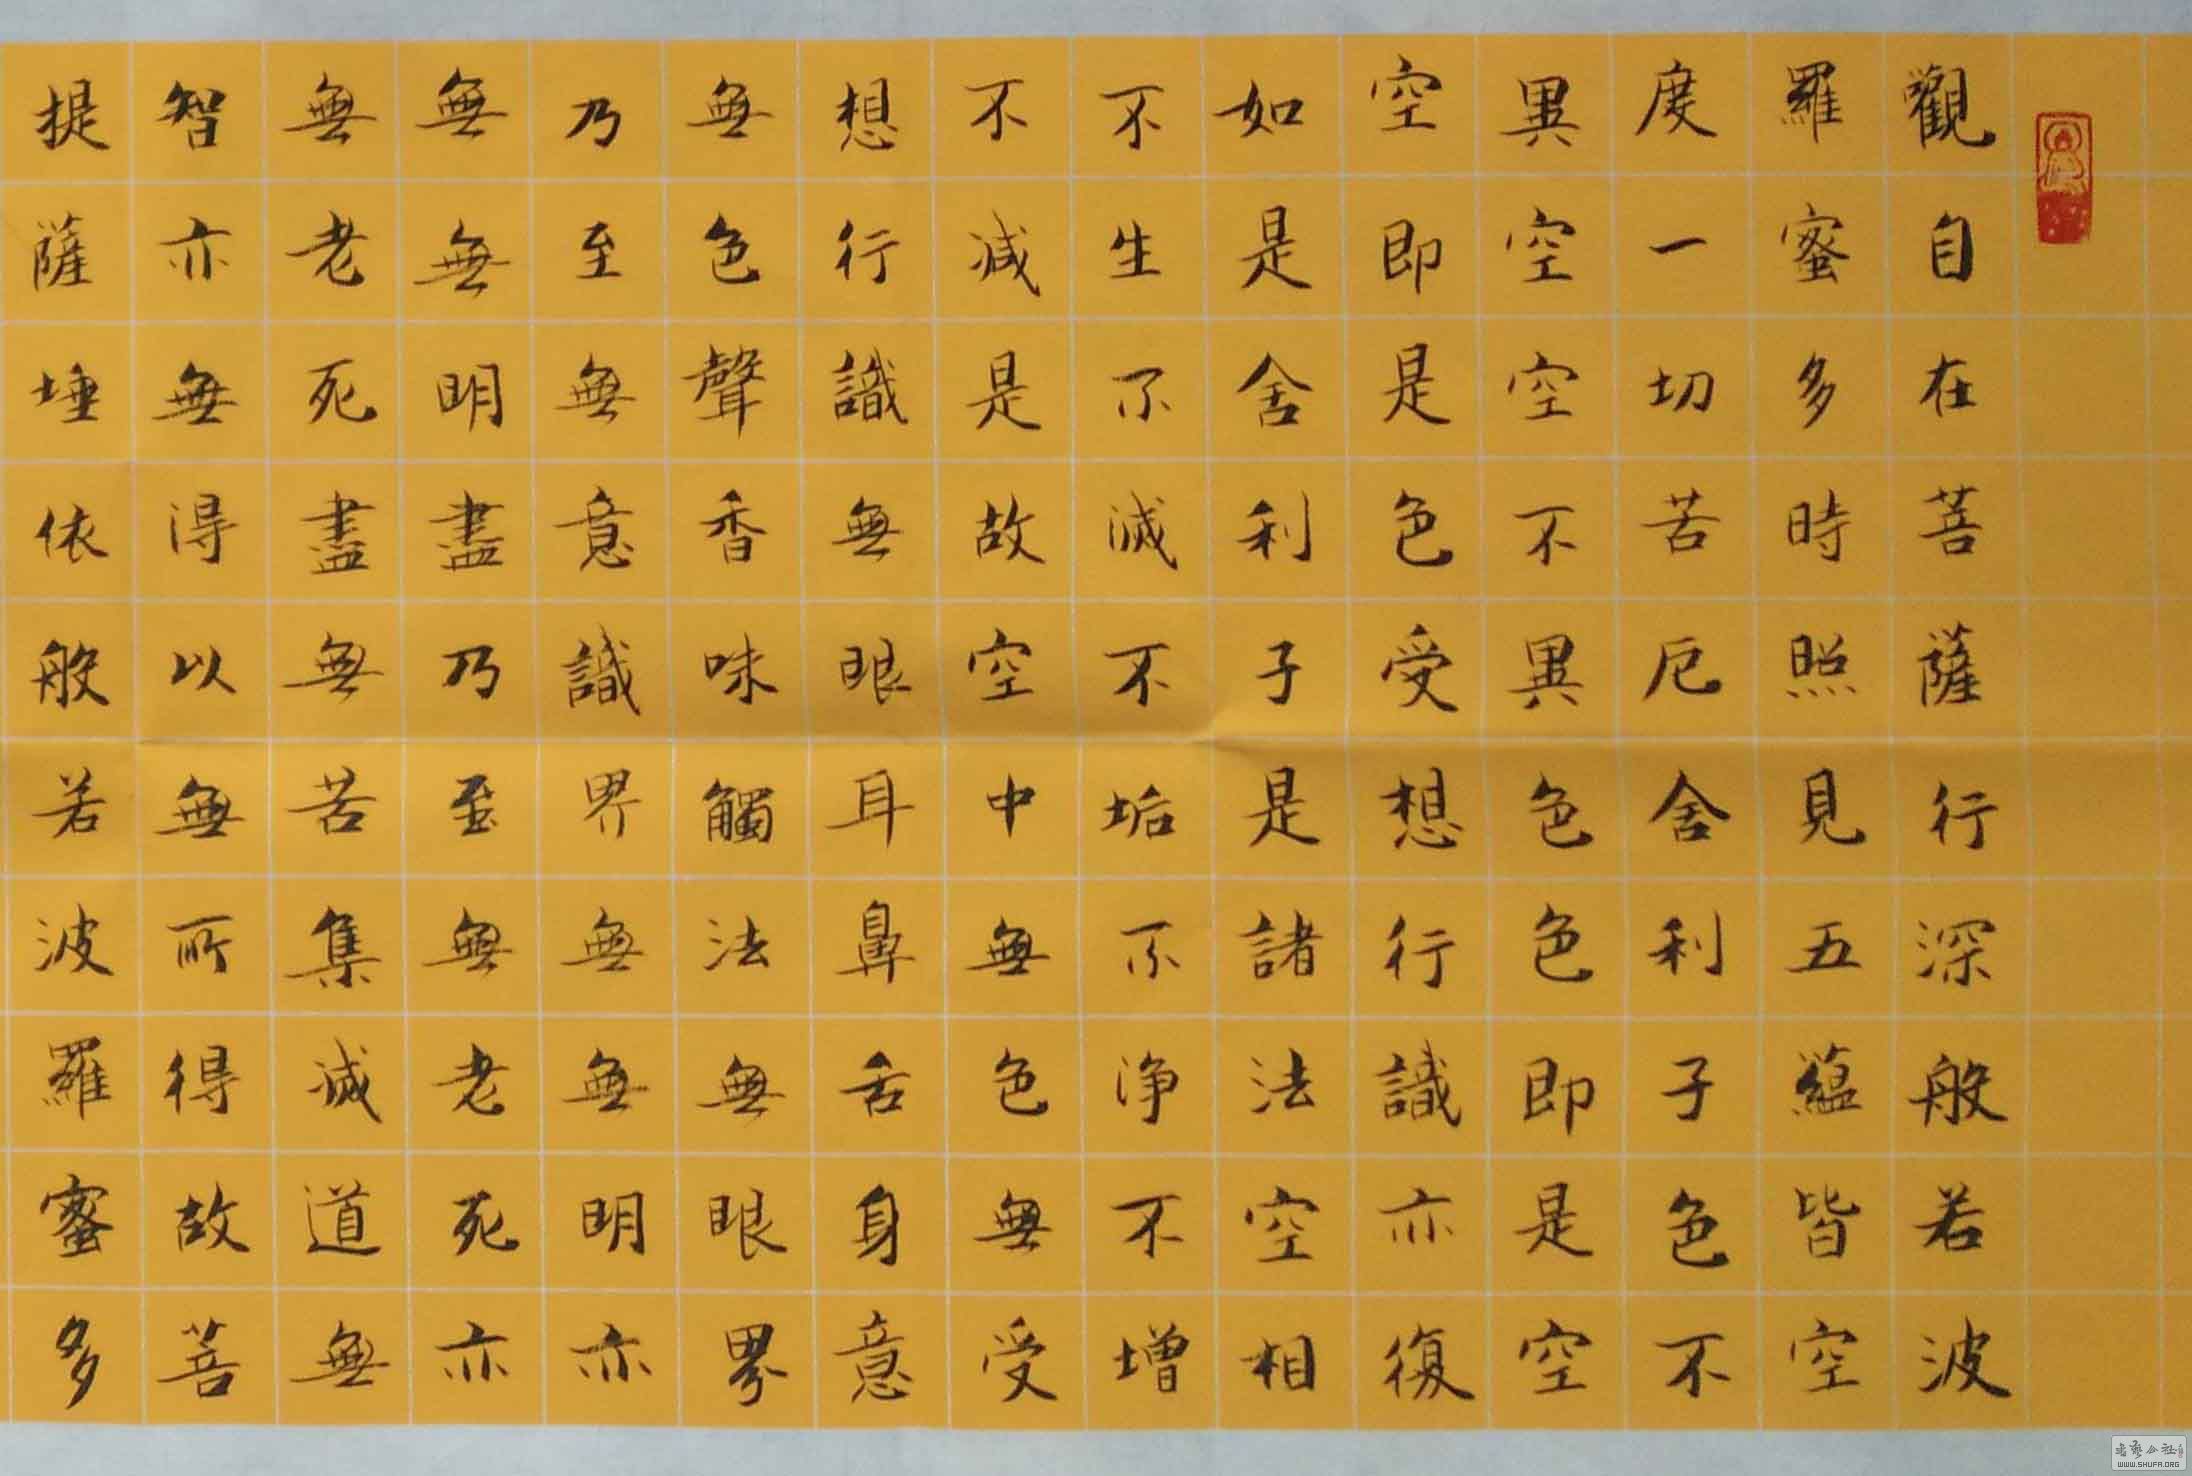 觀自在菩薩行深般若波
羅蜜多時照見五蘊皆空
度一切苦厄舍利子色不
異空空不異色色即是空
空即是色受想行識亦復
如是舍利子是諸法空相
不生不滅不垢不淨不增
不減是故空中無色無受
想行識無眼耳鼻舌身意
無色聲香味觸法無眼界
乃至無意識界無無明亦
無無明盡乃至無老死亦
無老死盡無苦集滅道無
智亦無得以無所得故菩
提薩埵依般若波羅蜜多
书藝公社
WWW.SHUFA.ORG